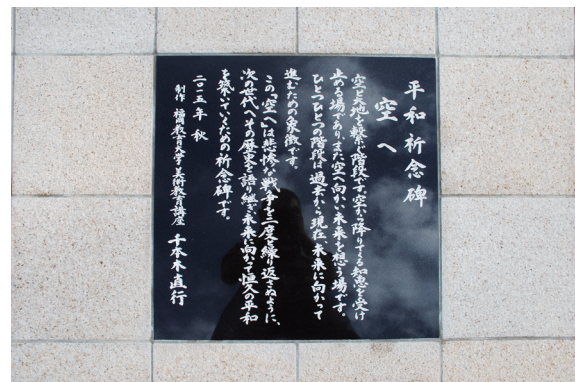 平和祈念碑
空へ
空と大地を繋ぐ階段です。空から降りてくる知恵を受け
止める場であり、また空へ向かい未来を想う場です。
ひとつひとつの階段は過去から現在、未来に向かって
進むための象徴です。
この「空へ」は悲惨な戦争を二度と繰り返さぬように、
次の世代へその歴史を語り継ぎ、未来に向かって恒久の平和
を築いていくための祈念碑です。
二〇一五年 秋
制作 福岡教育大学 美術教育講座 千本木直行